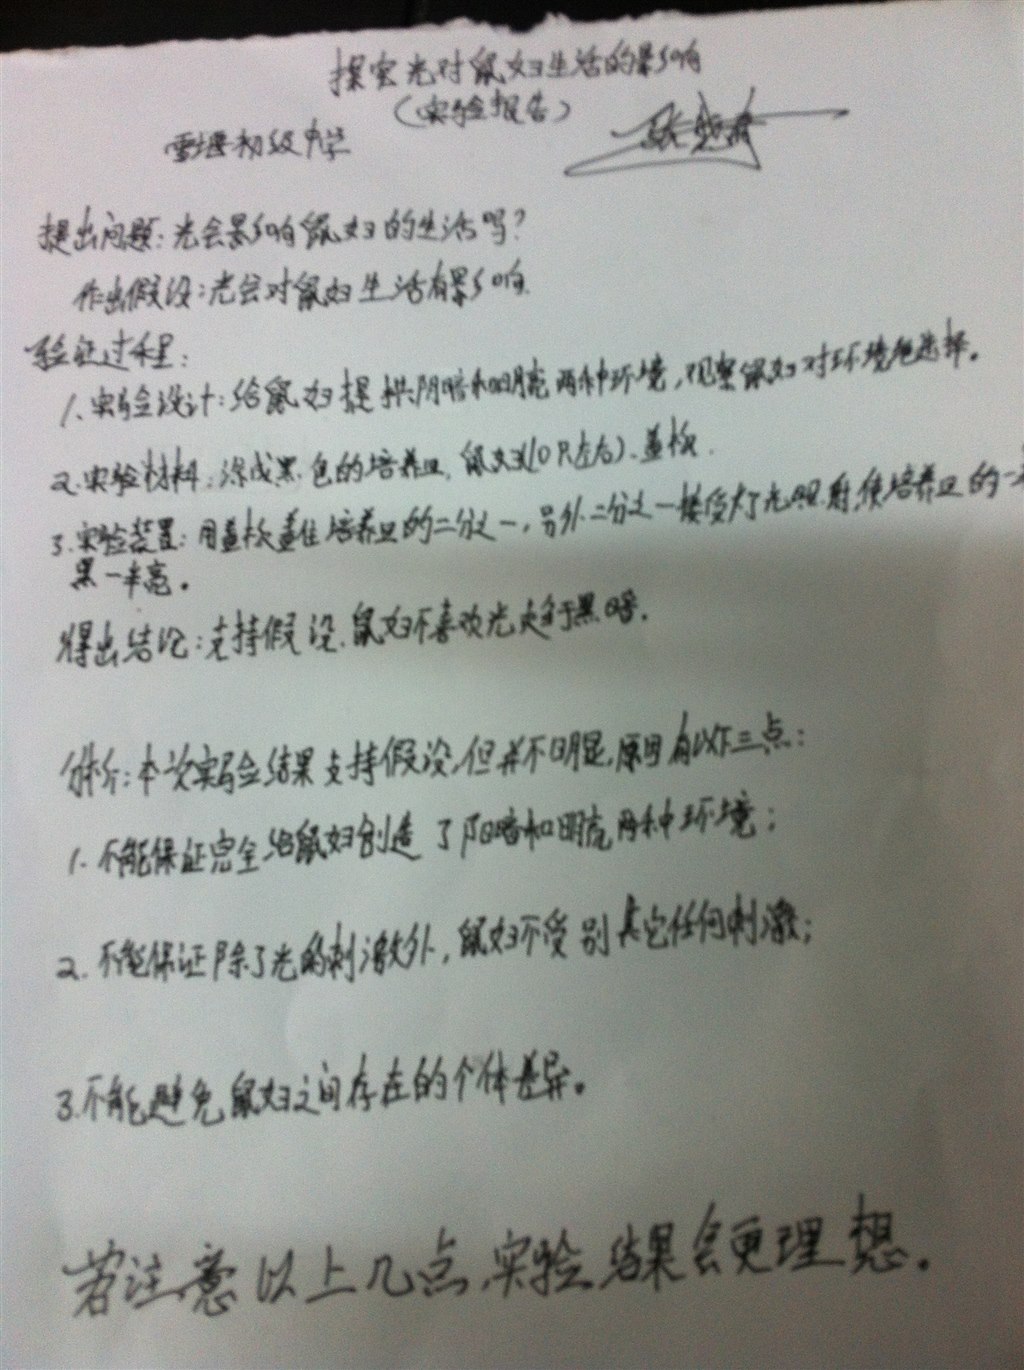 探究光对鼠妇生活的影响
（实验报告）
雪堰初级中学
提出问题：光会影响鼠妇的生活吗？
作出假设：光会对鼠妇生活有影响.
验证过程：
1、实验设计：给鼠妇提供阴暗和明亮两种环境，观察鼠妇对环境的选择。
2.实验材料：涂成黑色的培养皿、鼠妇(10只左右)、盖板.
3.实验装置：用盖板盖住培养皿的二分之一，另外二分之一接受灯光照射,使培养皿的一半
黑一半亮。
得出结论：支持假设、鼠妇不喜欢光趋于黑暗.
分析：本次实验结果支持假设,但并不明显,原因有以下三点：
1.不能保证完全给鼠妇创造了阴暗和明亮两种环境；
2.不能保证除了光的刺激外，鼠妇不受别其它任何刺激；
3.不能避免鼠妇之间存在的个体差异。
若注意以上几点、实验结果会更理想。